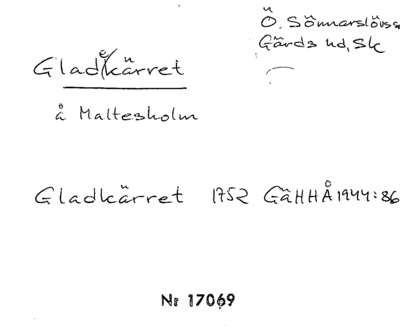 Ö. Sönnarslövs s
Gärds hd, Sk
Gladekärret
å Maltesholm
Gladkärret 1752 GäHHÅ 1944:86
Nr 17069